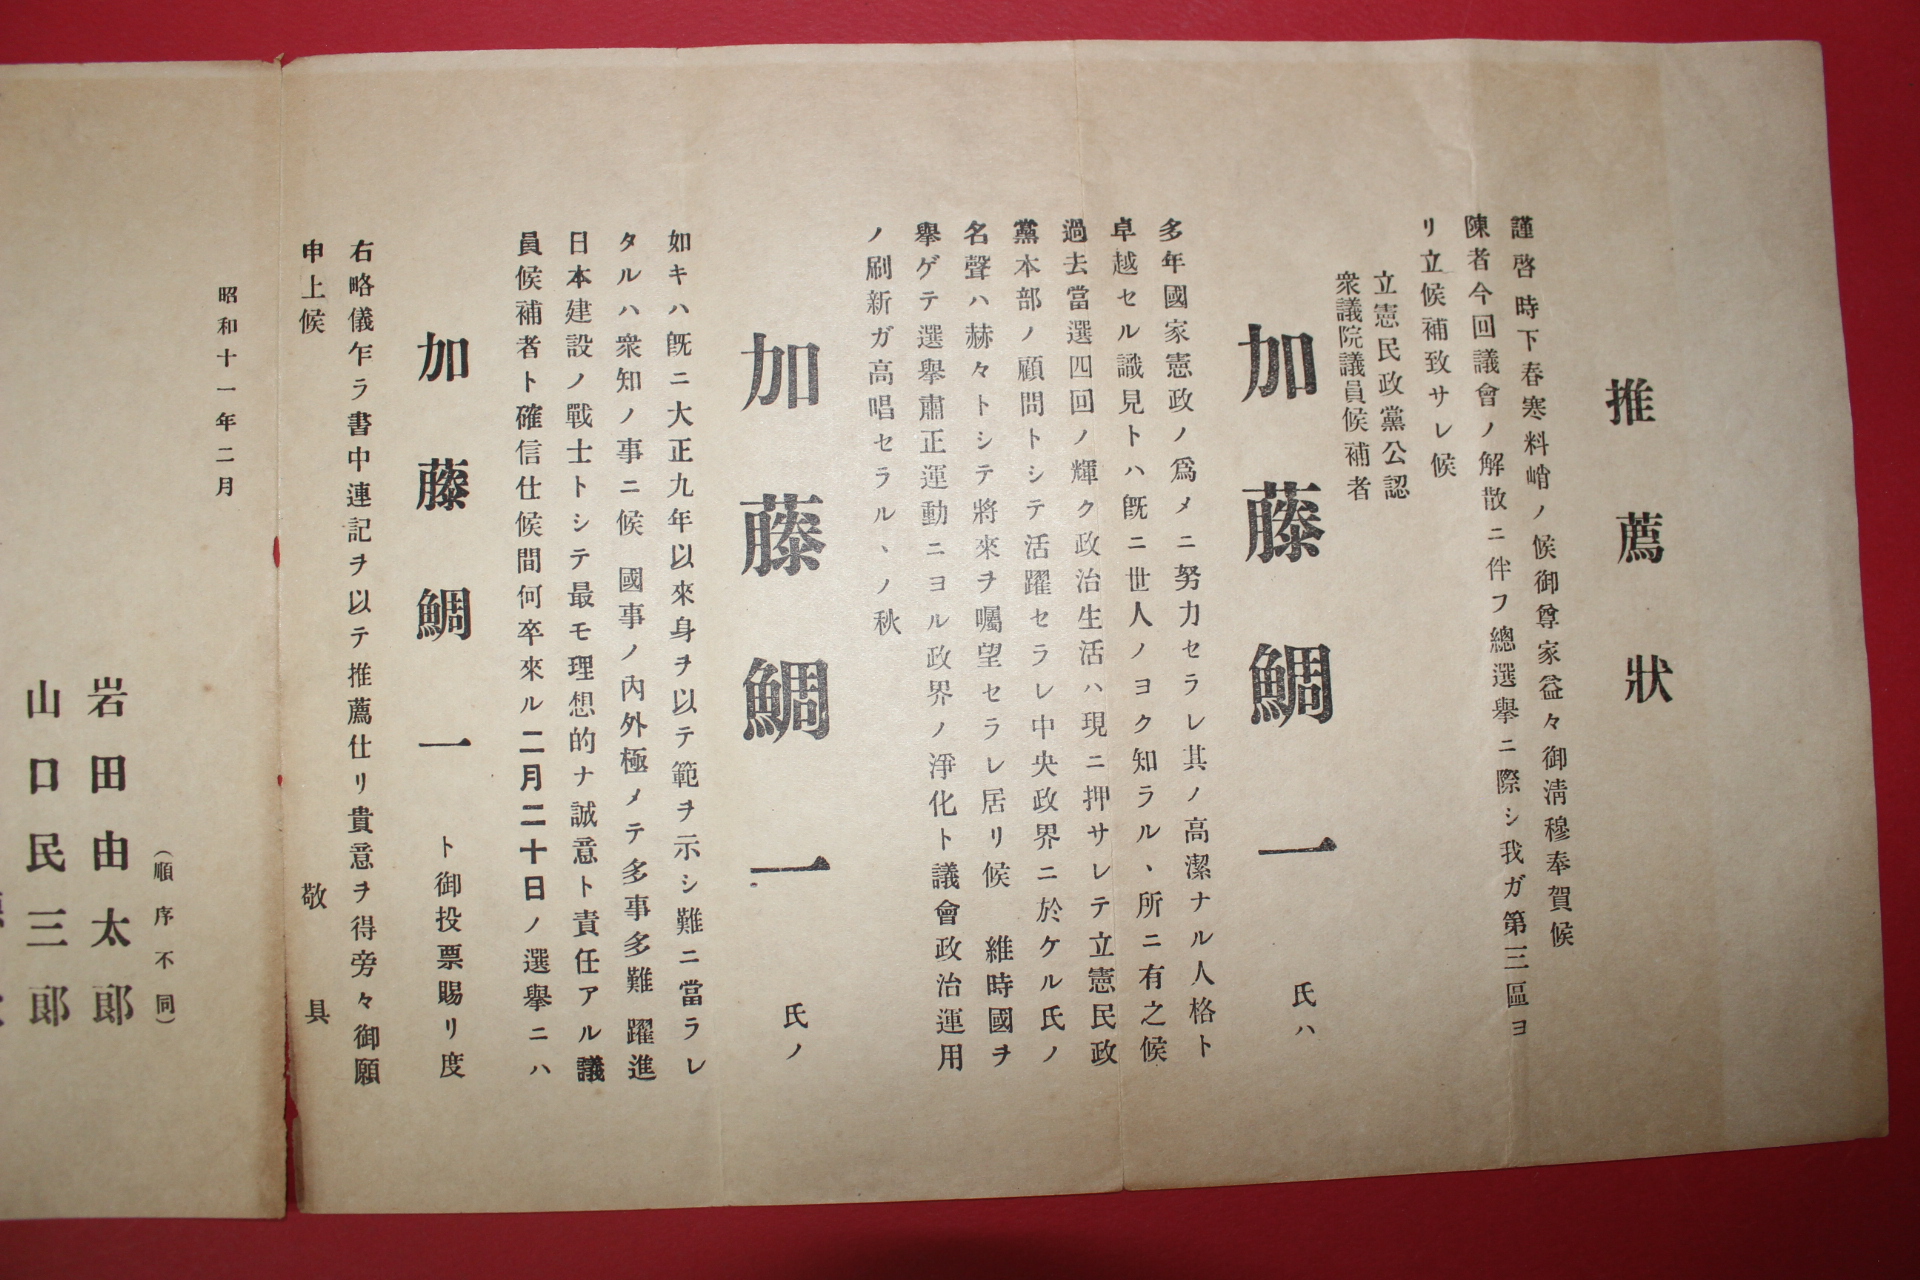 推薦狀
謹啓 時下春寒料峭ノ候御尊家益々御淸穆奉賀候
陳者今回議會ノ解散ニ伴フ總選擧ニ際シ我ガ第三區ヨ
リ立候補致サレ候
立憲民政黨公認
衆議院議員候補者
加藤鯛一 氏ハ
多年國家憲政ノ爲メニ努力セラレ其ノ高潔ナル人格ト
卓越セル識見トハ旣ニ世人ノヨク知ラル、所ニ有之候
過去當選四回ノ輝ク政治生活ハ現ニ押サレテ立憲民政
黨本部ノ顧問トシテ活躍セラレ中央政界ニ於ケル氏ノ
名聲ハ赫々トシテ將來ヲ囑望セラレ居リ候 維時國ヲ
擧ゲテ選擧肅正運動ニヨル政界ノ淨化ト議會政治運用
ノ刷新ガ高唱セラル、ノ秋
加藤鯛一 氏ノ
如キハ旣ニ大正九年以來身ヲ以テ範ヲ示シ難ニ當ラレ
タルハ衆知ノ事ニ候 國事ノ內外極メテ多事多難 躍進
日本建設ノ戰士トシテ最モ理想的ナ誠意ト責任アル議
員候補者ト確信仕候間何卒來ル二月二十日ノ選擧ニハ
加藤鯛一 ト御投票賜リ度
右略儀乍ラ書中連記ヲ以テ推薦仕リ貴意ヲ得旁々御願
申上候 敬具
昭和十一年二月
（順序不同）
岩田由太郞
山口民三郞